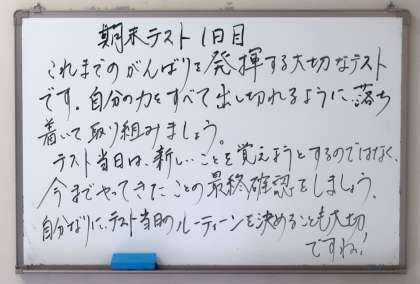 期末テスト1日目
これまでのがんばりを発揮する大切なテスト
です。自分の力をすべて出し切れるように、落ち
着いて取り組みましょう。
テスト当日は、新しいことを覚えようとするのではなく、
今までやってきたことの最終確認をしましょう。
自分なりに、テスト当日のルーティーンを決めることも大切
ですね!